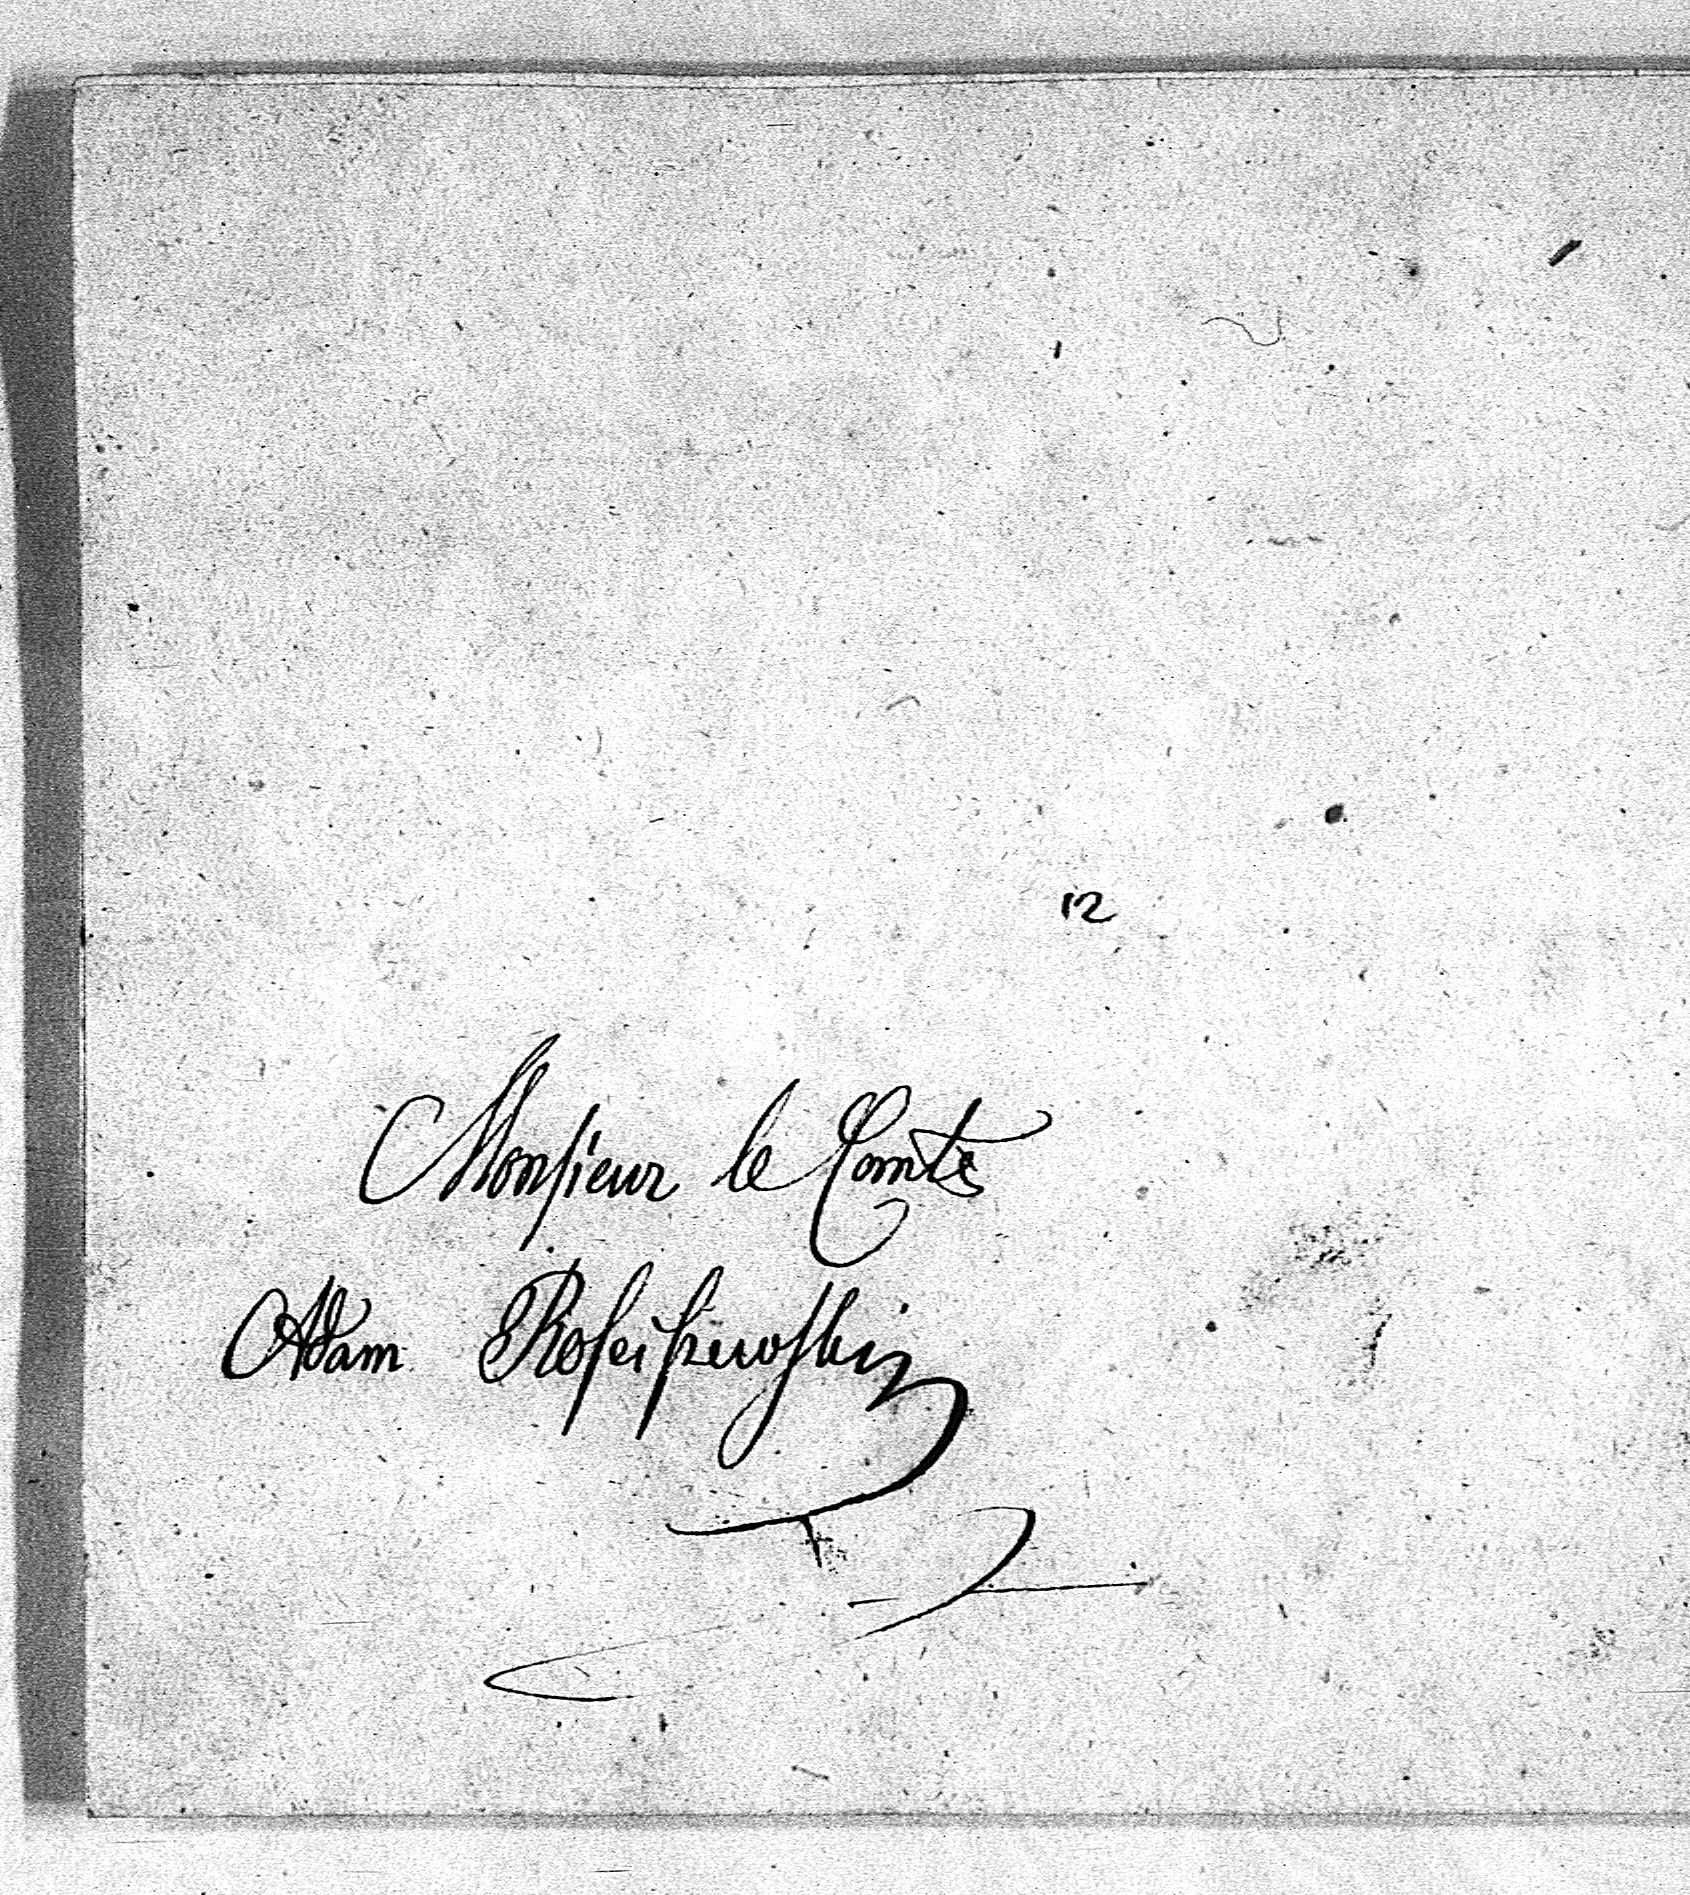 12
Monsieur le Comte
Adam